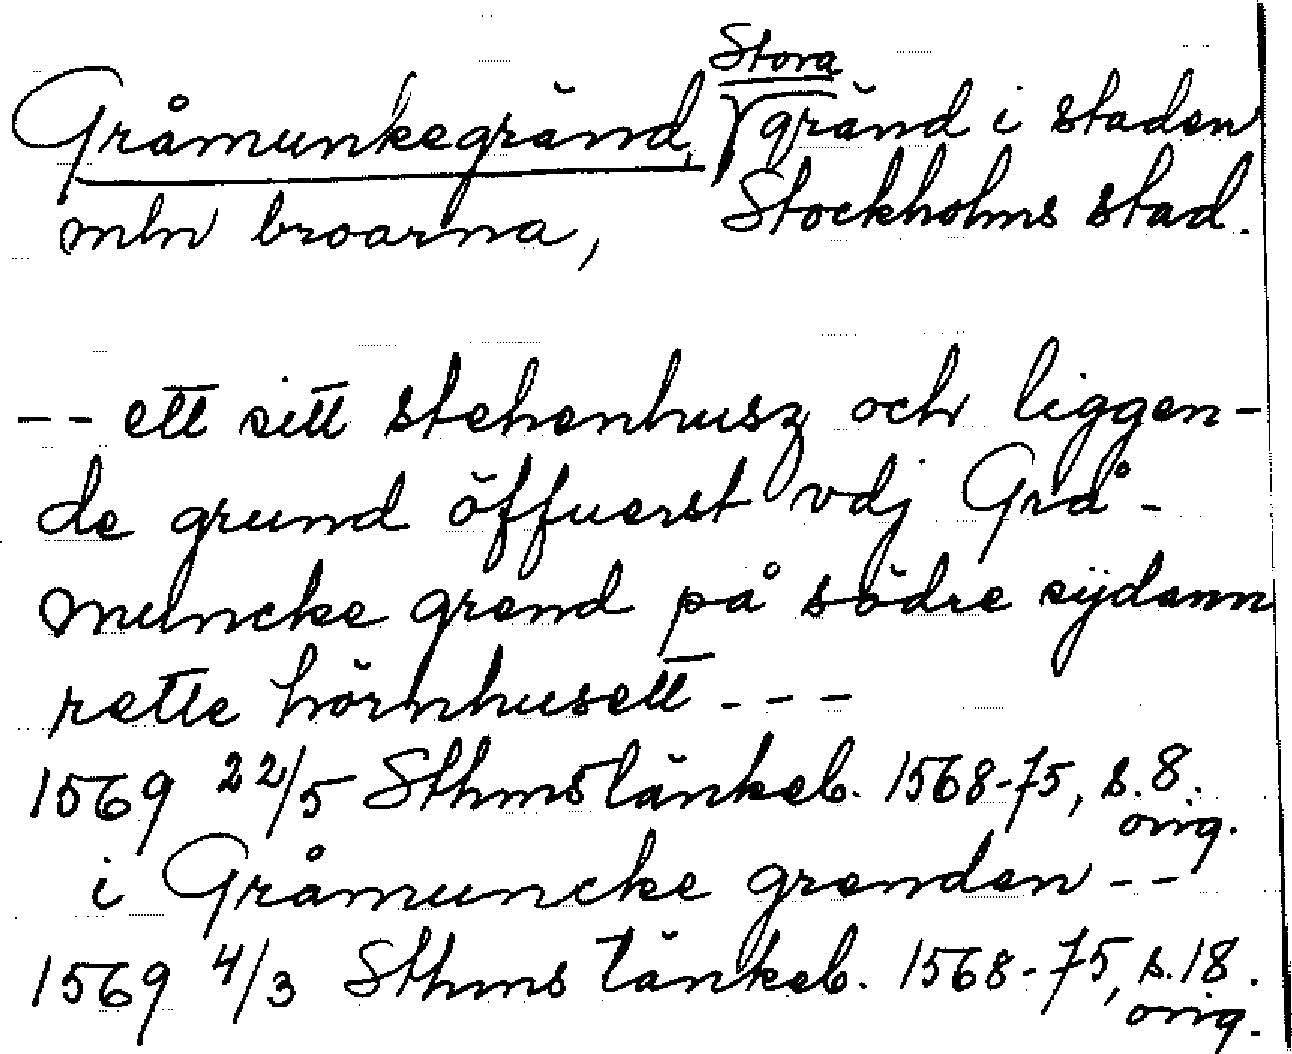 Gråmunkegränd, Stora gränd i staden
mln broarna, Stockholms stad.
-- ett sitt stehenhusz och liggen-
de grund öffuerst vdj Grå-
muncke grend på södre sÿdann
rette hörnhusett ---
1569 22/5 Sthms tänkeb. 1568-75, s. 8.
orig.
i Gråmuncke grenden --
1569 4/3 Sthms tänkeb. 1568-75, s. 18.
orig.